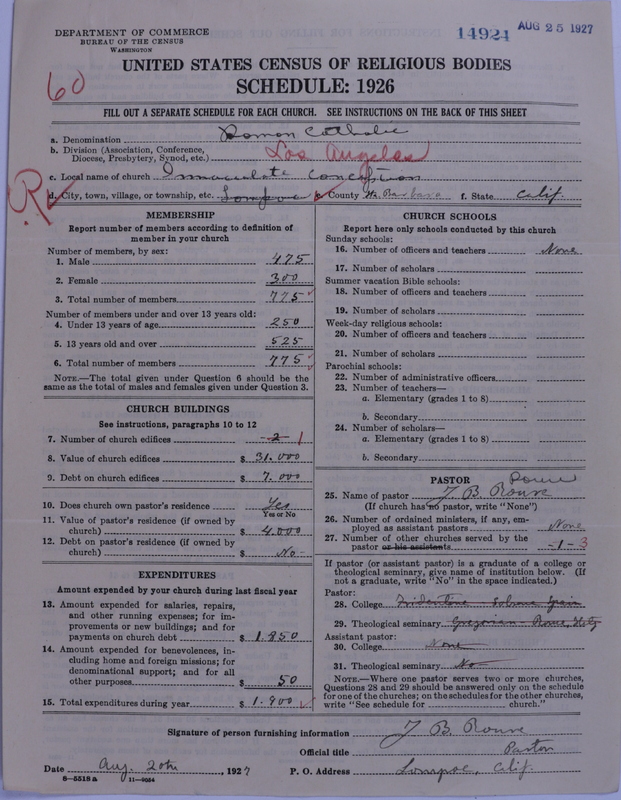 DEPARTMENT OF COMMERCE
BUREAU OF THE CENSUS
WASHINGTON
14924
AUG 25 1927
UNITED STATES CENSUS OF RELIGIOUS BODIES
SCHEDULE: 1926
60
FILL OUT A SEPARATE SCHEDULE FOR EACH CHURCH. SEE INSTRUCTIONS ON THE BACK OF THIS SHEET
a. Denomination Roman Catholic
b. Division (Association, Conference, Diocese, Presbytery, Synod, etc.) Los Angeles
c. Local name of church Immaculate Conception
R
d. City, town, village, or township, etc. Lompoc e. County Sta. Barbara f. State Calif.
MEMBERSHIP
Report number of members according to definition of member in your church
Number of members, by sex:
1. Male 475
2. Female 300
3. Total number of members 775
Number of members under and over 13 years old:
4. Under 13 years of age 250
5. 13 years old and over 525
6. Total number of members 775
NOTE.—The total given under Question 6 should be the
same as the total of males and females given under Question 3.
CHURCH BUILDINGS
See instructions, paragraphs 10 to 12
7. Number of church edifices 2 1
8. Value of church edifices $ 31.000
9. Debt on church edifices $ 7.000
10. Does church own pastor's residence Yes
Yes or No
11. Value of pastor's residence (if owned by
church) $ 4.000
12. Debt on pastor's residence (if owned by
church) $ No
EXPENDITURES
Amount expended by your church during last fiscal year
13. Amount expended for salaries, repairs,
and other running expenses; for im-
provements or new buildings; and for
payments on church debt $ 1.850
14. Amount expended for benevolences, in-
cluding home and foreign missions; for
denominational support; and for all
other purposes $ 50
15. Total expenditures during year $ 1.900
CHURCH SCHOOLS
Report here only schools conducted by this church
Sunday schools:
16. Number of officers and teachers None
17. Number of scholars
Summer vacation Bible schools:
18. Number of officers and teachers
19. Number of scholars
Week-day religious schools:
20. Number of officers and teachers
21. Number of scholars
Parochial schools:
22. Number of administrative officers
23. Number of teachers—
a. Elementary (grades 1 to 8)
b. Secondary
24. Number of scholars—
a. Elementary (grades 1 to 8)
b. Secondary
PASTOR
25. Name of pastor J. B.
(If church has no pastor, write "None")
26. Number of ordained ministers, if any, em-
ployed as assistant pastors None
27. Number of other churches served by the
pastor or his assistants 1 - 3
If pastor (or assistant pastor) is a graduate of a college or
theological seminary, give name of institution below. (If
not a graduate, write "No" in the space indicated.)
Pastor:
28. College
29. Theological seminary Gregorian - Rome, Italy
Assistant pastor:
30. College None
31. Theological seminary No
NOTE.—Where one pastor serves two or more churches,
Questions 28 and 29 should be answered only on the schedule
for one of the churches; on the schedules for the other churches,
write "See schedule for church."
Signature of person furnishing information J. B.
Official title Pastor
Date Aug. 20th, 1927 P. O. Address Lompoc, Calif.
8—5518a 11—9024